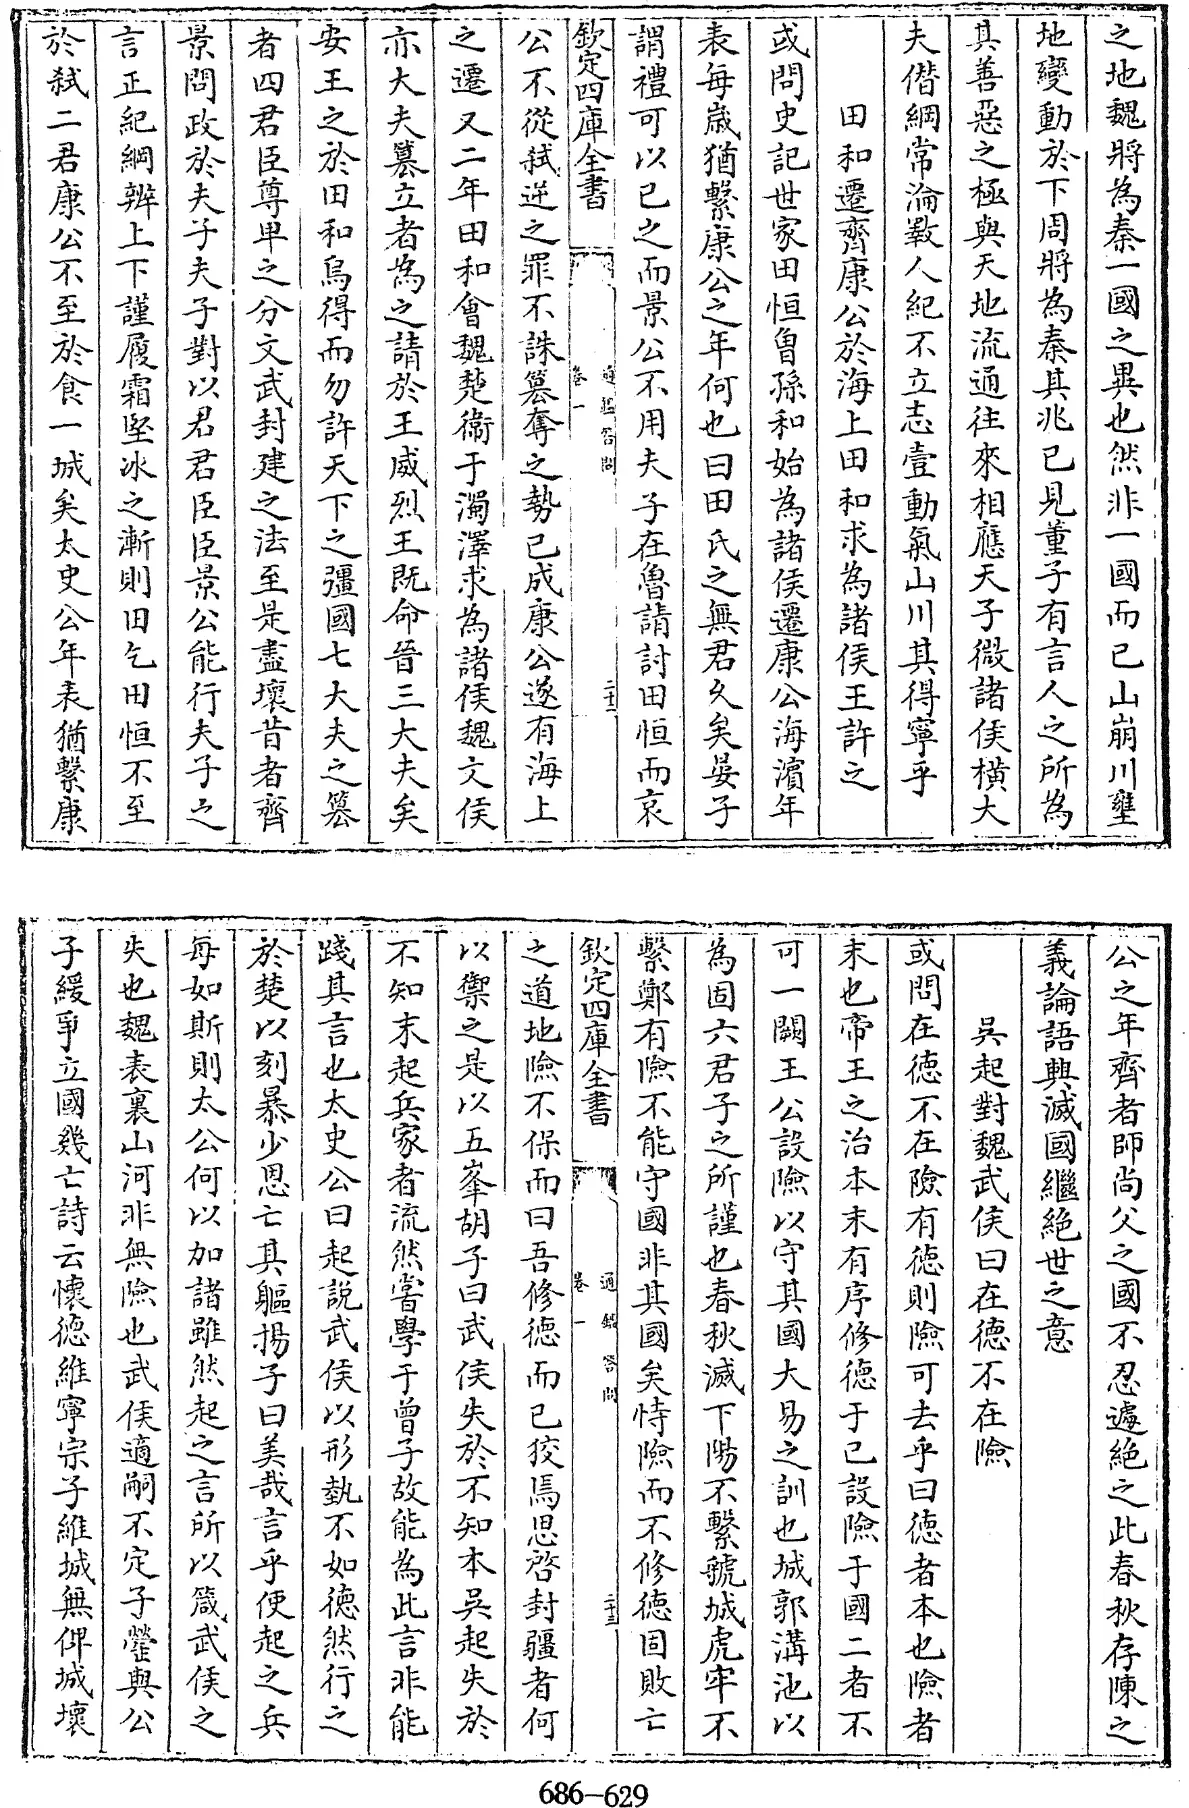 之地魏將為秦一國之異也然非一國而已山崩川壅
地變動於下周將為秦其兆已見董子有言人之所為
其善惡之極與天地流通往來相應天子微諸侯橫大
夫僭綱常淪斁人紀不立志壹動氣山川其得寧乎
田和遷齊康公於海上田和求為諸侯王許之
或問史記世家田恒曾孫和始為諸侯遷康公海濱年
表每歲猶繫康公之年何也曰田氏之無君久矣晏子
謂禮可以已之而景公不用夫子在魯請討田恒而哀
欽定四庫全書
通鑑答問
卷一
二十二
公不從弑逆之罪不誅簒奪之勢已成康公遂有海上
之遷又二年田和會魏楚衞于濁澤求為諸侯魏文侯
亦大夫簒立者為之請於王威烈王既命晉三大夫矣
安王之於田和烏得而勿許天下之彊國七大夫之簒
者四君臣尊卑之分文武封建之法至是盡壞昔者齊
景問政於夫子夫子對以君君臣臣景公能行夫子之
言正紀綱辨上下謹履霜堅冰之漸則田乞田恒不至
於弑二君康公不至於食一城矣太史公年表猶繫康
公之年齊者師尚父之國不忍遽絕之此春秋存陳之
義論語興滅國繼絕世之意
吳起對魏武侯曰在德不在險
或問在德不在險有德則險可去乎曰德者本也險者
末也帝王之治本末有序修德于己設險于國二者不
可一闕王公設險以守其國大易之訓也城郭溝池以
為固六君子之所謹也春秋滅下陽不繫虢城虎牢不
繫鄭有險不能守國非其國矣恃險而不修德固敗亡
欽定四庫全書
通鑑答問
卷一
二十三
之道地險不保而曰吾修德而已狡焉思啓封疆者何
以禦之是以五峯胡子曰武侯失於不知本吳起失於
不知末起兵家者流然嘗學于曾子故能為此言非能
踐其言也太史公曰起說武侯以形埶不如德然行之
於楚以刻暴少恩亡其軀揚子曰美哉言乎使起之兵
每如斯則太公何以加諸雖然起之言所以箴武侯之
失也魏表裏山河非無險也武侯適嗣不定子罃與公
子緩爭立國幾亡詩云懷德維寧宗子維城無俾城壞
686—629